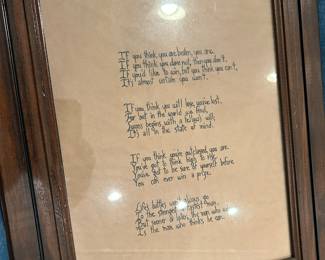 If you think you are beaten, you are.
If you think you dare not, then you don't,
If you'd like to win, but you think you can't,
It's almost certain you won't.
If you think you will lose, you've lost.
For out in the world we find,
Success begins with a fellow's will;
It's all in the state of mind.
If you think you're outclassed, you are.
You've got to think high to rise,
You've got to be sure of yourself before
You can ever win a prize.
Life's battles won't always go
To the strongest or fastest man,
But sooner or later, the man who wins
Is the man who thinks he can.